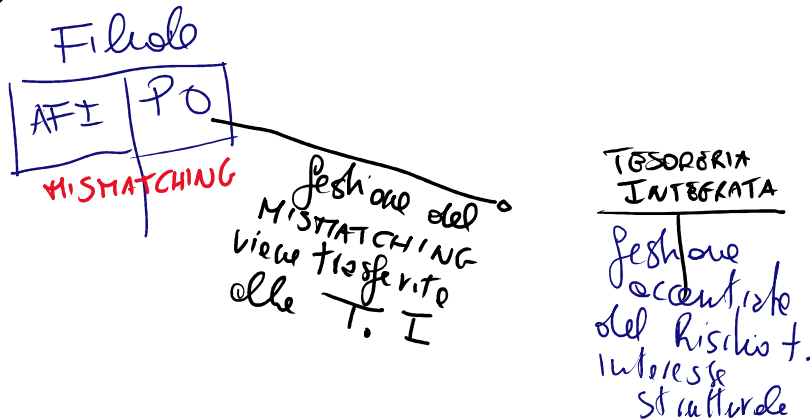 Filiale
AFI PO
MISMATCHING
gestione del
MISMATCHING
viene trasferita
alla T. I
TESORERIA
INTEGRATA
gestione
accentrata
del Rischio t.
interesse
strutturale